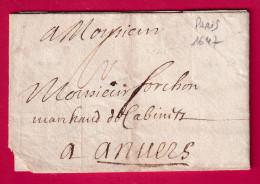 A Monsieur
Paris
1647
Monsieur forchon
marchand de Cabinets
a anvers